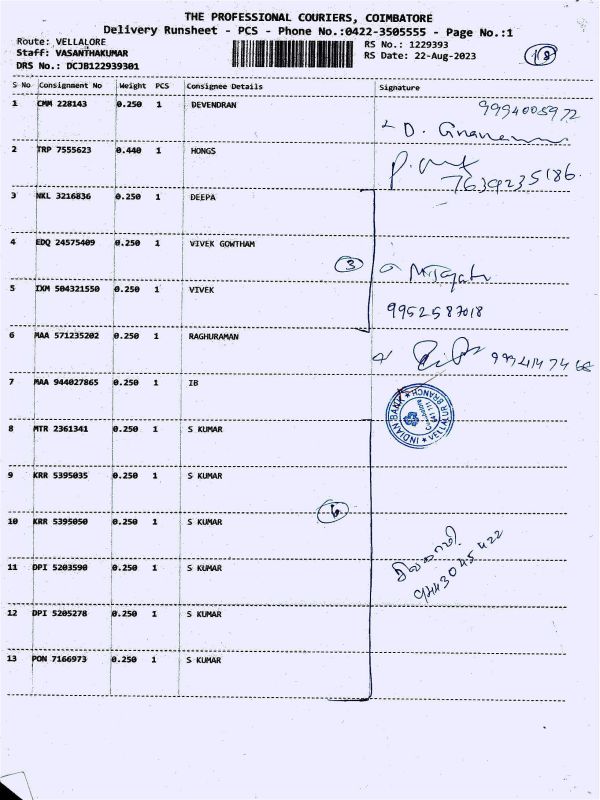 THE PROFESSIONAL COURIERS, COIMBATORE
Delivery Runsheet - PCS - Phone No.:0422-3505555 - Page No.:1
Route: VELLALORE
RS No.: 1229393
Staff: VASANTHAKUMAR
RS Date: 22-Aug-2023
DRS No.: DCJB122939301
S No Consignment No Weight PCS Consignee Details Signature
1 CMM 228143 0.250 1 DEVENDRAN 9994005972
D.
2 TRP 7555623 0.440 1 HONGS
7639235186.
3 NKL 3216836 0.250 1 DEEPA
4 EDQ 24575409 0.250 1 VIVEK GOWTHAM
3
5 IXM 504321550 0.250 1 VIVEK
9952587018
6 MAA 571235202 0.250 1 RAGHURAMAN
7 MAA 944027865 0.250 1 IB
INDIAN BANK ★ VELLALUR BRANCH ★
8 MTR 2361341 0.250 1 S KUMAR
9 KRR 5395035 0.250 1 S KUMAR
10 KRR 5395050 0.250 1 S KUMAR
6
11 DPI 5203590 0.250 1 S KUMAR
9443045422
12 DPI 5205278 0.250 1 S KUMAR
13 PON 7166973 0.250 1 S KUMAR